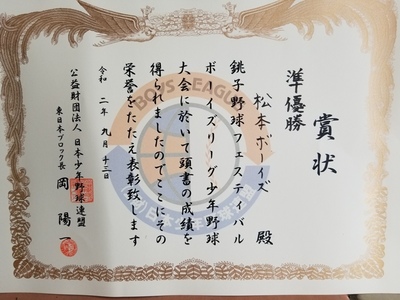 賞状
準優勝
松本ボーイズ 殿
銚子野球フェスティバル
ボーイズリーグ少年野球
大会に於いて頭書の成績を
得られましたのでここにその
栄誉をたたえ表彰致します
令和二年九月十三日
公益財団法人 日本少年野球連盟
東日本ブロック長 岡 陽一
BOYS LEAGUE